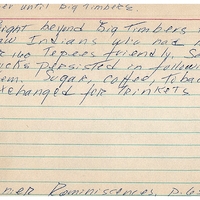 er until Big Timbers.
ight beyond Big Timbers
aw Indians who had
or 160 Tepees friendly. S
cks persisted in followi
em. Sugar, coffee, Toba
xchanged for Trinkets
rier Reminiscences, p.